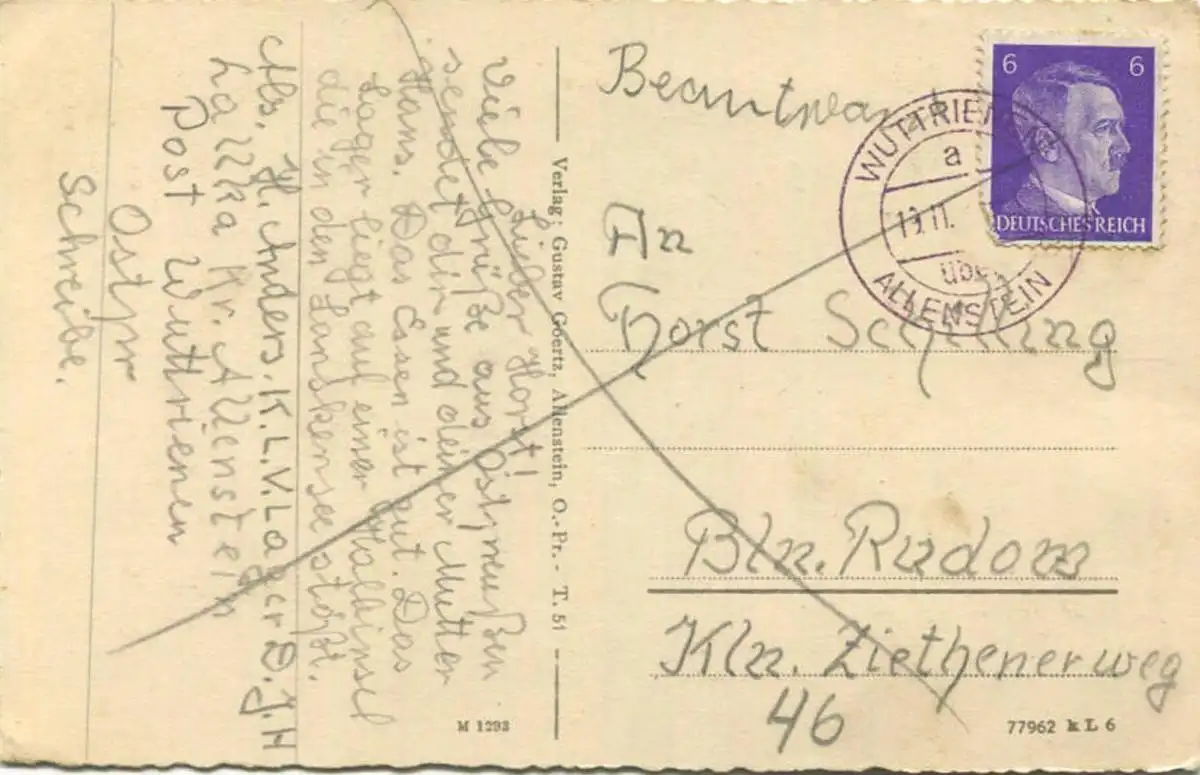 Lieber Horst!
Viele Grüße aus Ostpreußen
sendet dir und deiner Mutter
Hans. Das Essen ist gut. Das
Lager liegt auf einer Halbinsel
die in den Lanskensee stößt.
Abs. H. Anders. K.L.V. Lager D.J.H
Lallka Kr. Allenstein
Post Wuttrienen
Ostpr
Schreibe.
Verlag: Gustav Goertz, Allenstein, O.-Pr. - T. 51
M 1293
Beantwort
6 6
DEUTSCHES REICH
WUTTRIENEN
a
19.11.
über
ALLENSTEIN
An
Horst Schilling
Bln. Rudow
Kln. Ziethenerweg
46
77962 k L 6